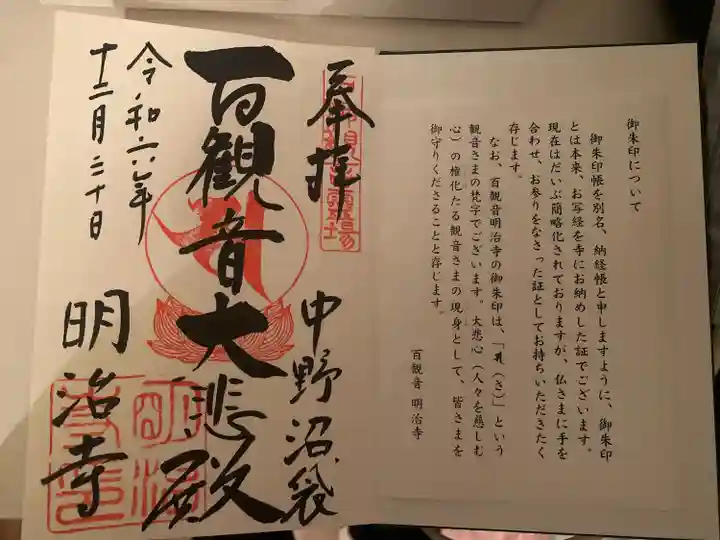 御朱印について
御朱印帳を別名、納経帳と申しますように、御朱印
とは本来、お写経を寺にお納めした証でございます。
現在はだいぶ簡略化されておりますが、仏さまに手を
合わせ、お参りをなさった証としてお持ちいただきたく
存じます。
なお、百観音明治寺の御朱印は、「 (さ)」という
観音さまの梵字でございます。大悲心(人々を慈しむ
心)の権化たる観音さまの現身として、皆さまを
御守りくださることと存じます。
百観音 明治寺
奉拝
中野沼袋
百観音大悲殿
令和六年
十二月二十日
明治寺